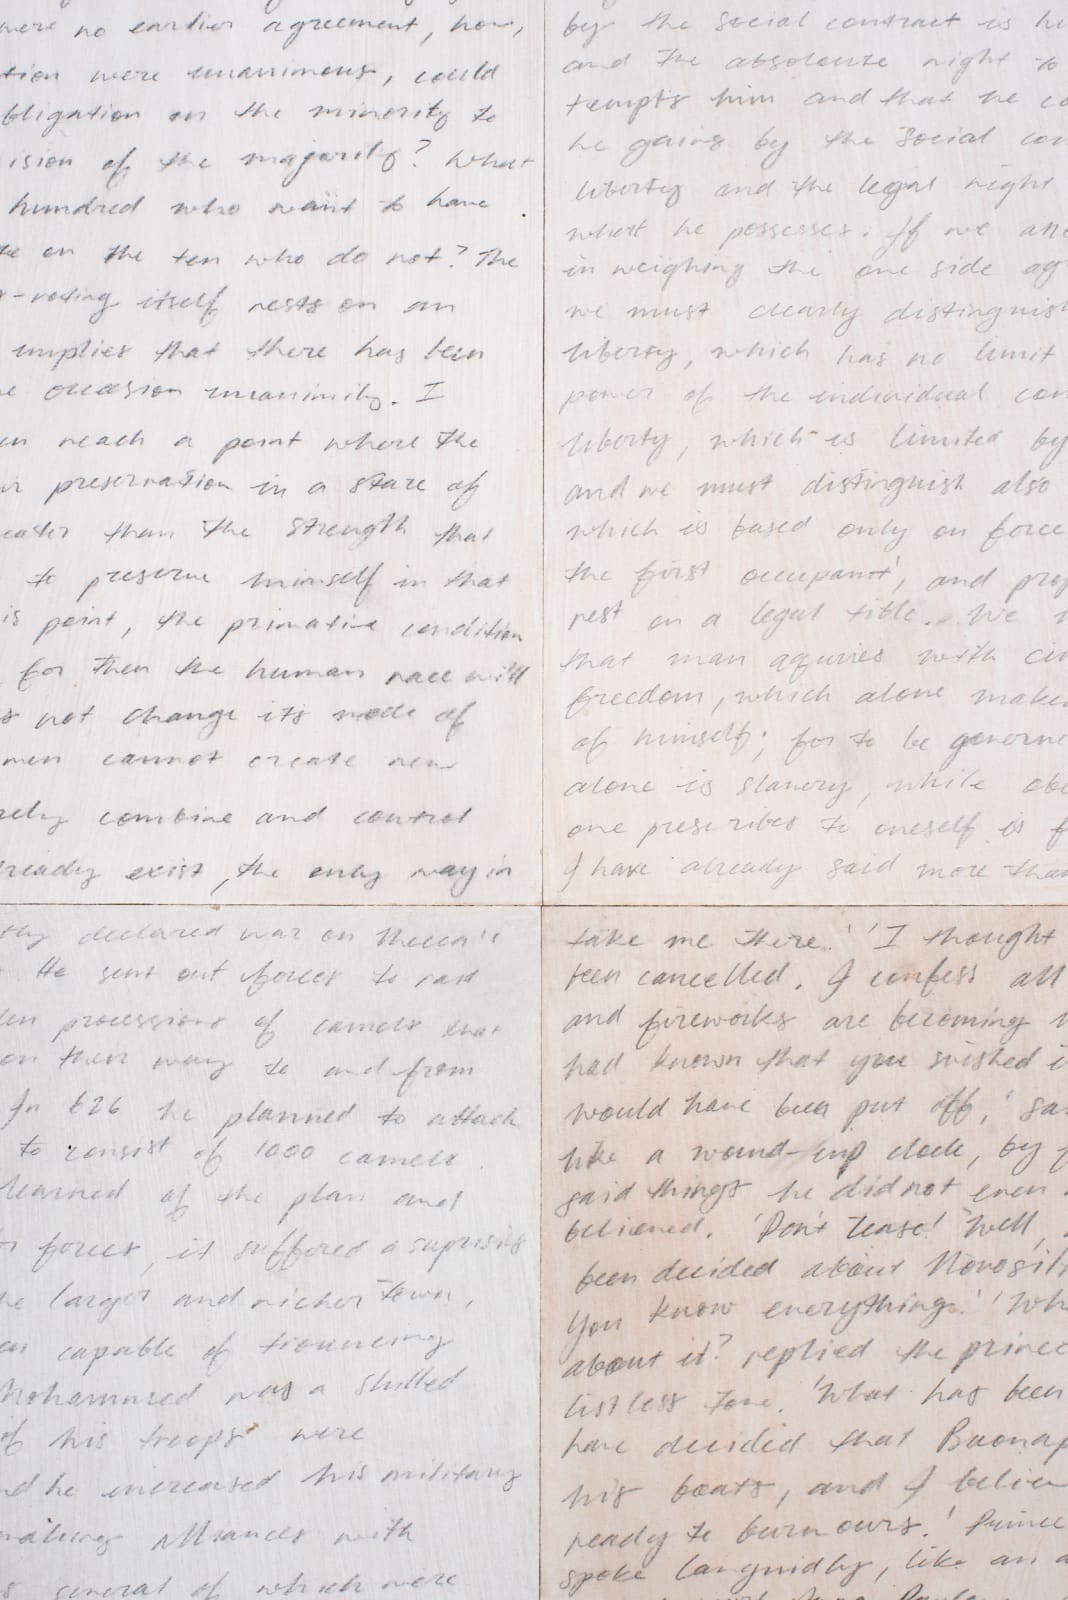 were no earlier agreement, how,
tion were unanimous, could
bligation on the minority to
ision of the majority? What
hundred who want to have
on the ten who do not? The
-voting itself rests on an
implies that there has been
occasion unanimity. I
reach a point where the
preservation in a state of
eater than the strength that
to preserve himself in that
is point, the primative condition
for then the human race will
not change its mode of
men cannot create new
rely combine and control
lready exist, the only way in
by the social contract is hi
and the absolute right to
tempts him and that he co
he gains by the social con
liberty and the legal right
what he possesses. If we are
in weighing the one side ag
we must clearly distinguish
liberty, which has no limit
power of the individual con
liberty, which is limited by
and we must distinguish also
which is based only on force
the first occupant', and prop
rest on a legal title. We
that man aquries with civ
freedom, which alone makes
of himself; for to be governe
alone is slavery, while obe
one prescribes to oneself is f
I have already said more than
declared war on Mecca's
He sent out forces to raid
processions of camels that
on their way to and from
In 626 he planned to attack
to consist of 1000 camels.
learned of the plan and
forces, it suffered a suprising
larger and richer town,
capable of financing
Mohammed was a skilled
of his troops were
nd he increased his military
making alliances with
several of which were
take me there.' 'I thought
been cancelled. I confess all
and fireworks are becoming
had known that you wished i
would have been put off,' sa
like a wound-up clock, by
said things he did not even
believed. 'Don't tease! Well,
been decided about Novosil
You know everything.' 'Wh
about it?' replied the prince
listless tone. 'What has been
have decided that Buonap
his boats, and I believe
ready to burn ours.' Prince
spoke languidly, like an a